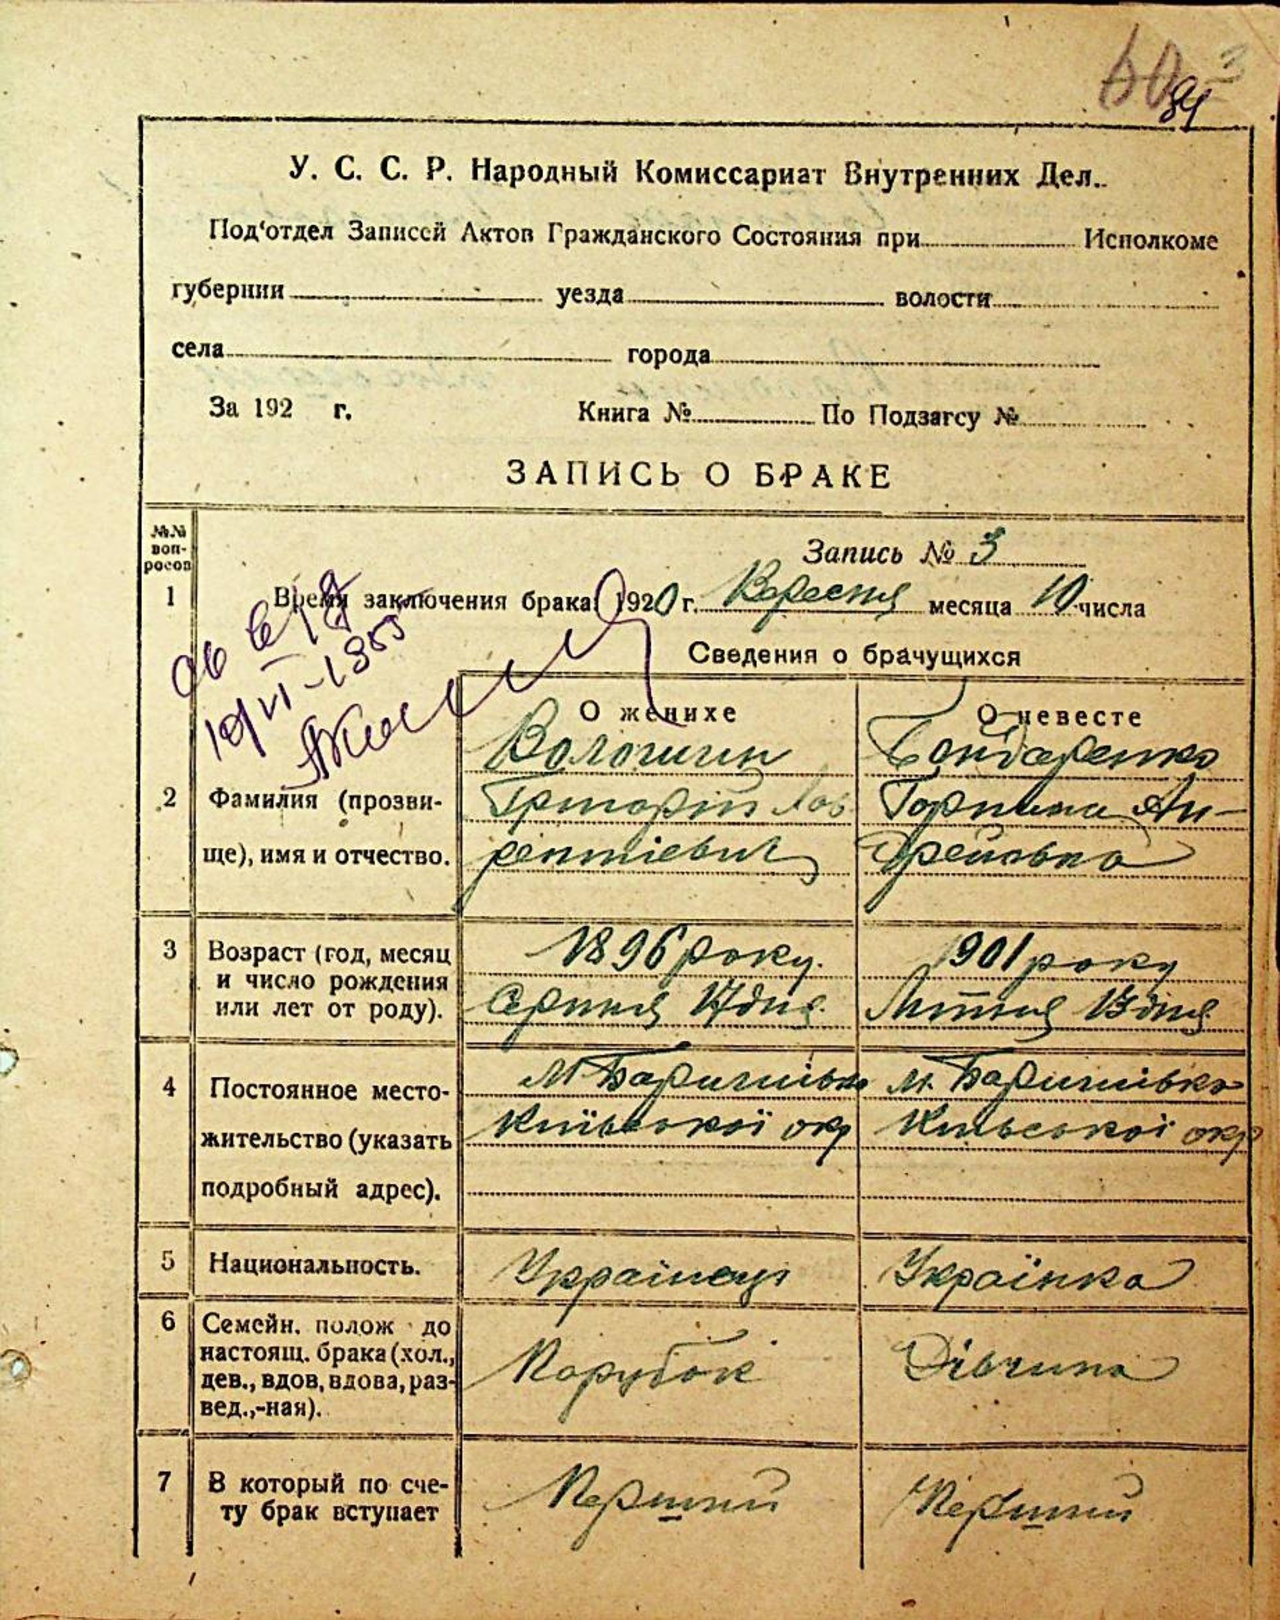 60 3
84
У. С. С. Р. Народный Комиссариат Внутренних Дел.
Под‘отдел Записей Актов Гражданского Состояния при Исполкоме
губернии уезда волости
села города
За 192 г. Книга № По Подзагсу №
ЗАПИСЬ О БРАКЕ
№№ вопросов
Запись № 3
1 Время заключения брака 1920 г. Вересня месяца 10 числа
Сведения о брачущихся
О женихе О невесте
Волошин Бондаренко
2 Фамилия (прозви- Григорій Лав Горпина Ан-
ще), имя и отчество. рентіевич дреївна
3 Возраст (год, месяц 1896 року. 1901 року
и число рождения
или лет от роду). Серпня 17 дня. Липня 13 дня
4 Постоянное место- м. Баришівка м. Баришівка
жительство (указать Київської окр Київської окр
подробный адрес).
5 Национальность. Українець Українка
6 Семейн. полож до
настоящ. брака (хол., Парубок Дівчина
дев., вдов, вдова, раз-
вед.,-ная).
7 В который по сче- Перший Перший
ту брак вступает